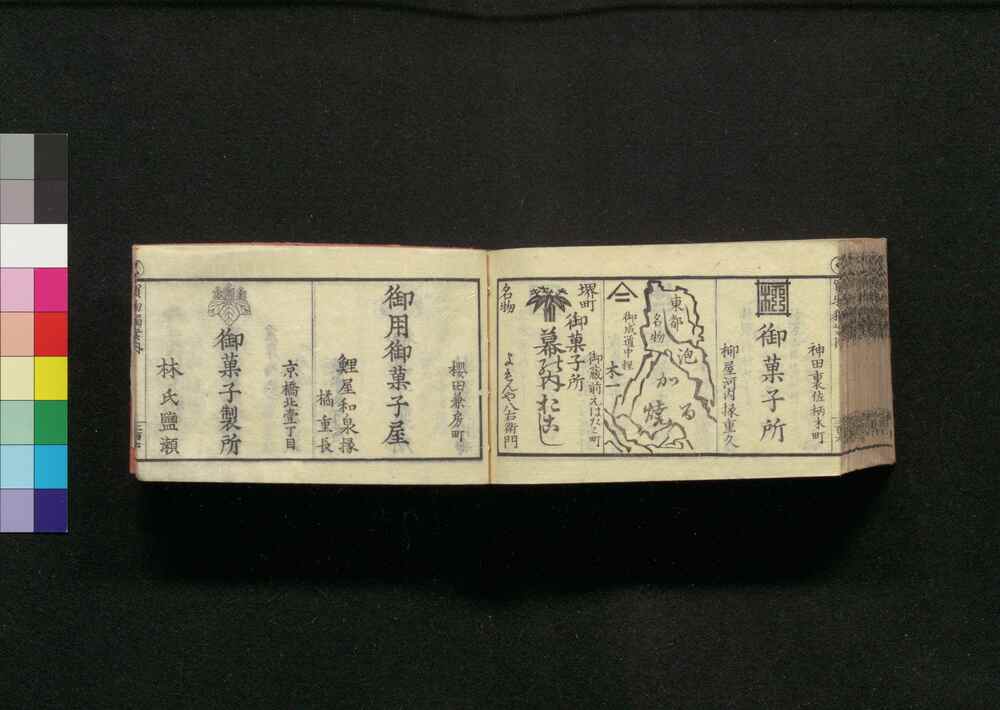 神田裏佐柄木町
御菓子所
柳屋河内掾重久
東都
名物
泡
かる
焼
御成道中程
太一
堺町
御菓子所
御蔵前
名物
幕の内おこし
櫻田兼房町
御用御菓子屋
鯉屋和泉掾
橘重長
京橋北壹丁目
御菓子製所
林氏鹽瀬